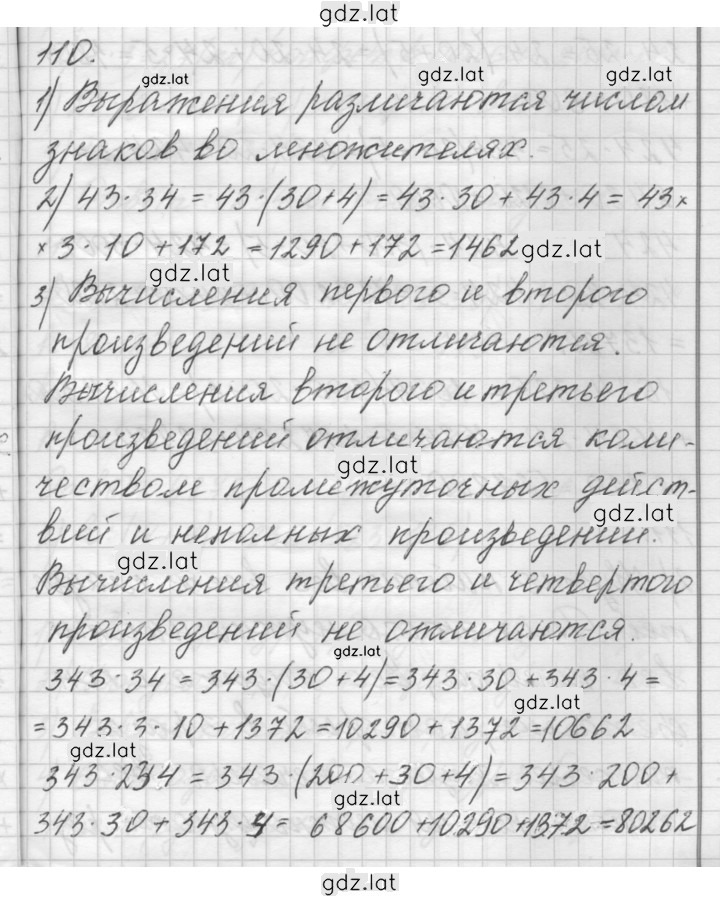 gdz.lat
110.
gdz.lat gdz.lat gdz.lat
1) Выражения различаются числом
знаков во множителях.
2) 43·34 = 43·(30+4) = 43·30 + 43·4 = 43×
× 3·10 + 172 = 1290 + 172 = 1462 gdz.lat
gdz.lat
3) Вычисления первого и второго
произведений не отличаются.
Вычисления второго и третьего
произведений отличаются коли-
gdz.lat
чеством промежуточных дейст-
gdz.lat
вий и неполных произведений.
gdz.lat
Вычисления третьего и четвертого
произведений не отличаются.
gdz.lat
343·34 = 343·(30+4) = 343·30 + 343·4 =
gdz.lat
= 343·3·10 + 1372 = 10290 + 1372 = 10662
gdz.lat
343·234 = 343·(200 + 30 + 4) = 343·200 +
gdz.lat
343·30 + 343·4 = 68600 + 10290 + 1372 = 80262
gdz.lat